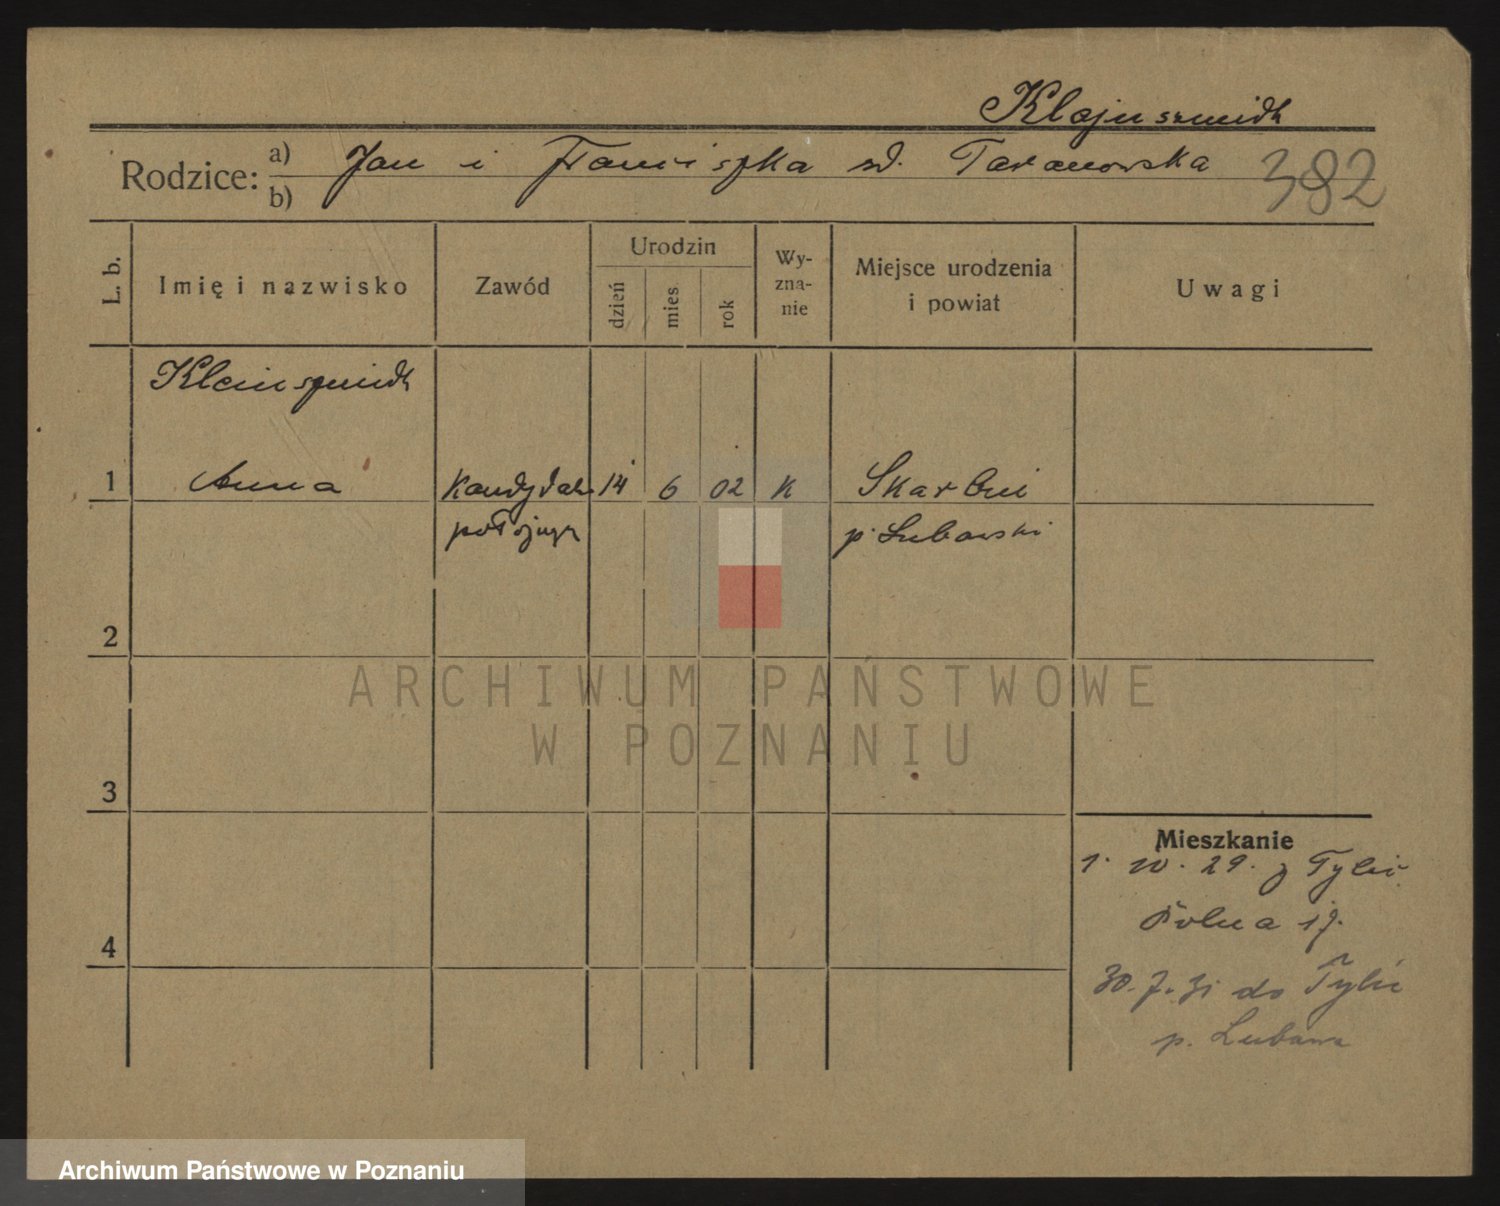 Klajnszmidt
Rodzice: a) Jan i Franciszka zd. Taranowska
b)
382
L. b.
Imię i nazwisko
Zawód
Urodzin
dzień
mies
rok
Wy-
zna-
nie
Miejsce urodzenia
i powiat
Uwagi
Kleinszmidt
1 Anna kandydat. 14 6 02 K Skarlin
położnych p. Lubawski
2
3
4
Mieszkanie
1. 10. 29. z Tylic
Polna 17.
30. 7. 31 do Tylic
p. Lubawa
ARCHIWUM PAŃSTWOWE
W POZNANIU
Archiwum Państwowe w Poznaniu